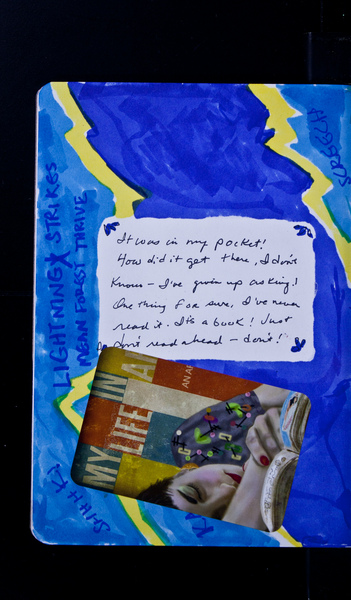 SCREECH
LIGHTNING STRIKES
NEAR FOREST THRIVE
It was in my pocket!
How did it get there, I don't
know – I've given up asking!
One thing for sure, I've never
read it. It's a book! Just
don't read ahead – don't!
MY
LIFE
IN
AN